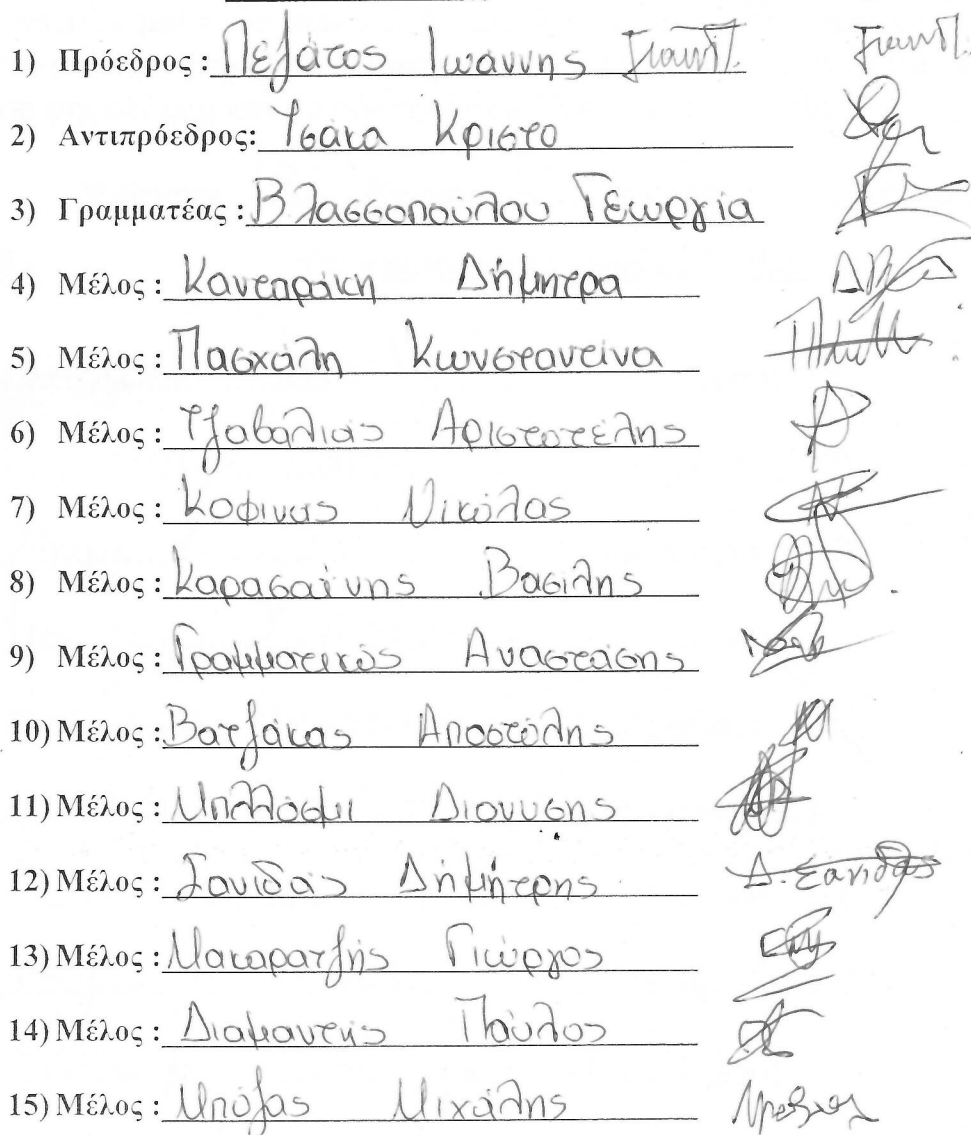 1) Πρόεδρος : Πεζάτος Ιωάννης Γιανπ. Γιανπ.
2) Αντιπρόεδρος: Τσάκα Κρίστο
3) Γραμματέας : Βλασσοπούλου Γεωργία
4) Μέλος : Δήμητρα
5) Μέλος : Πασχάλη Κωνσταντίνα
6) Μέλος : Τζαβαλιάς Αριστοτέλης
7) Μέλος : Κοφινας Νικόλας
8) Μέλος : Καρασαΐνης Βασίλης
9) Μέλος : Γραμματικός Αναστάσης
10) Μέλος : Βατζάκας Αποστόλης
11) Μέλος : Διονυσης
12) Μέλος : Σανιδάς Δήμήτρης Δ. Σανιδάς
13) Μέλος : Μακαρατζής Γιώργος
14) Μέλος : Διαμαντής Παύλος
15) Μέλος : Μπόζας Μιχάλης